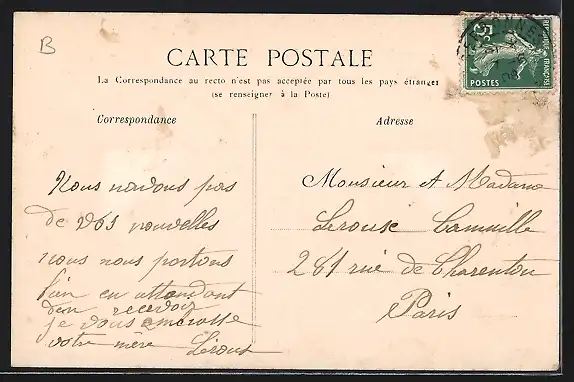 B
CARTE POSTALE
La Correspondance au recto n'est pas acceptée par tous les pays étranger
(se renseigner à la Poste)
Correspondance
Adresse
5c
POSTES
Nous navons pas
de vos nouvelles
nous nous portons
bien en attendant
den recevoir
je vous embrasse
votre mere Leroux
Monsieur et Madame
Leroux Camille
261 rue de Charenton
Paris